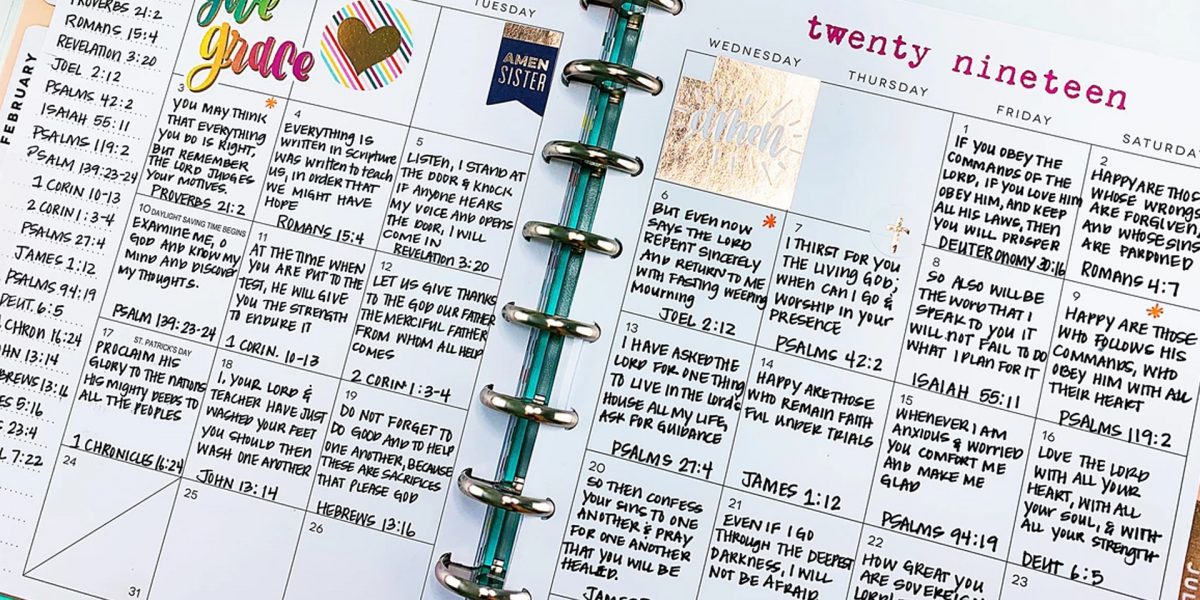 FEBRUARY
PROVERBS 21:2
ROMANS 15:4
REVELATION 3:20
JOEL 2:12
PSALMS 42:2
ISAIAH 55:11
PSALMS 119:2
PSALM 139:23-24
1 CORIN 10-13
2 CORIN 1:3-4
PSALMS 27:4
JAMES 1:12
PSALMS 94:19
DEUT. 6:5
CHRON 16:24
13:14
13:16
5:16
23:4
7:22
grace
TUESDAY
AMEN
SISTER
3
YOU MAY THINK
THAT EVERYTHING
YOU DO IS RIGHT,
BUT REMEMBER
THE LORD JUDGES
YOUR MOTIVES.
PROVERBS 21:2
4
EVERYTHING IS
WRITTEN IN SCRIPTURE
WAS WRITTEN TO TEACH
US, IN ORDER THAT
WE MIGHT HAVE
HOPE
ROMANS 15:4
5
LISTEN, I STAND AT
THE DOOR & KNOCK
IF ANYONE HEARS
MY VOICE AND OPENS
THE DOOR, I WILL
COME IN
REVELATION 3:20
10 DAYLIGHT SAVING TIME BEGINS
EXAMINE ME, O
GOD AND KNOW MY
MIND AND DISCOVER
MY THOUGHTS.
PSALM 139:23-24
11
AT THE TIME WHEN
YOU ARE PUT TO THE
TEST, HE WILL GIVE
YOU THE STRENGTH
TO ENDURE IT
1 CORIN. 10-13
12
LET US GIVE THANKS
TO THE GOD OUR FATHER
THE MERCIFUL FATHER
FROM WHOM ALL HELP
COMES
2 CORIN 1:3-4
17
ST. PATRICK'S DAY
PROCLAIM HIS
GLORY TO THE NATIONS
HIS MIGHTY DEEDS TO
ALL THE PEOPLES
1 CHRONICLES 16:24
18
I, YOUR LORD &
TEACHER HAVE JUST
WASHED YOUR FEET
YOU SHOULD THEN
WASH ONE ANOTHER
JOHN 13:14
19
DO NOT FORGET TO
DO GOOD AND TO HELP
ONE ANOTHER, BECAUSE
THESE ARE SACRIFICES
THAT PLEASE GOD
HEBREWS 13:16
24
31
25
26
twenty nineteen
WEDNESDAY
THURSDAY
FRIDAY
SATURDAY
amen
1
IF YOU OBEY THE
COMMANDS OF THE
LORD, IF YOU LOVE HIM
OBEY HIM, AND KEEP
ALL HIS LAWS, THEN
YOU WILL PROSPER
DEUTERONOMY 30:16
2
HAPPY ARE THOS
WHOSE WRONGS
ARE FORGIVEN,
AND WHOSE SINS
ARE PARDONED
ROMANS 4:7
6
BUT EVEN NOW
SAYS THE LORD
REPENT SINCERELY
AND RETURN TO ME
WITH FASTING WEEPING
MOURNING
JOEL 2:12
7
I THIRST FOR YOU
THE LIVING GOD;
WHEN CAN I GO &
WORSHIP IN YOUR
PRESENCE
PSALMS 42:2
8
SO ALSO WILL BE
THE WORD THAT I
SPEAK TO YOU IT
WILL NOT FAIL TO DO
WHAT I PLAN FOR IT
ISAIAH 55:11
9
HAPPY ARE THOSE
WHO FOLLOWS HIS
COMMANDS, WHO
OBEY HIM WITH ALL
THEIR HEART
PSALMS 119:2
13
I HAVE ASKED THE
LORD FOR ONE THING
TO LIVE IN THE LORDS
HOUSE ALL MY LIFE,
ASK FOR GUIDANCE
PSALMS 27:4
14
HAPPY ARE THOSE
WHO REMAIN FAITH
FUL UNDER TRIALS
JAMES 1:12
15
WHENEVER I AM
ANXIOUS & WORRIED
YOU COMFORT ME
AND MAKE ME
GLAD
PSALMS 94:19
16
LOVE THE LORD
WITH ALL YOUR
HEART, WITH ALL
YOUR SOUL, & WITH
ALL YOUR STRENGTH
DEUT 6:5
20
SO THEN CONFESS
YOUR SINS TO ONE
ANOTHER & PRAY
FOR ONE ANOTHER
THAT YOU WILL BE
HEALED.
21
EVEN IF I GO
THROUGH THE DEEPEST
DARKNESS, I WILL
NOT BE AFRAID
22
HOW GREAT YOU
ARE SOVEREIGN
23